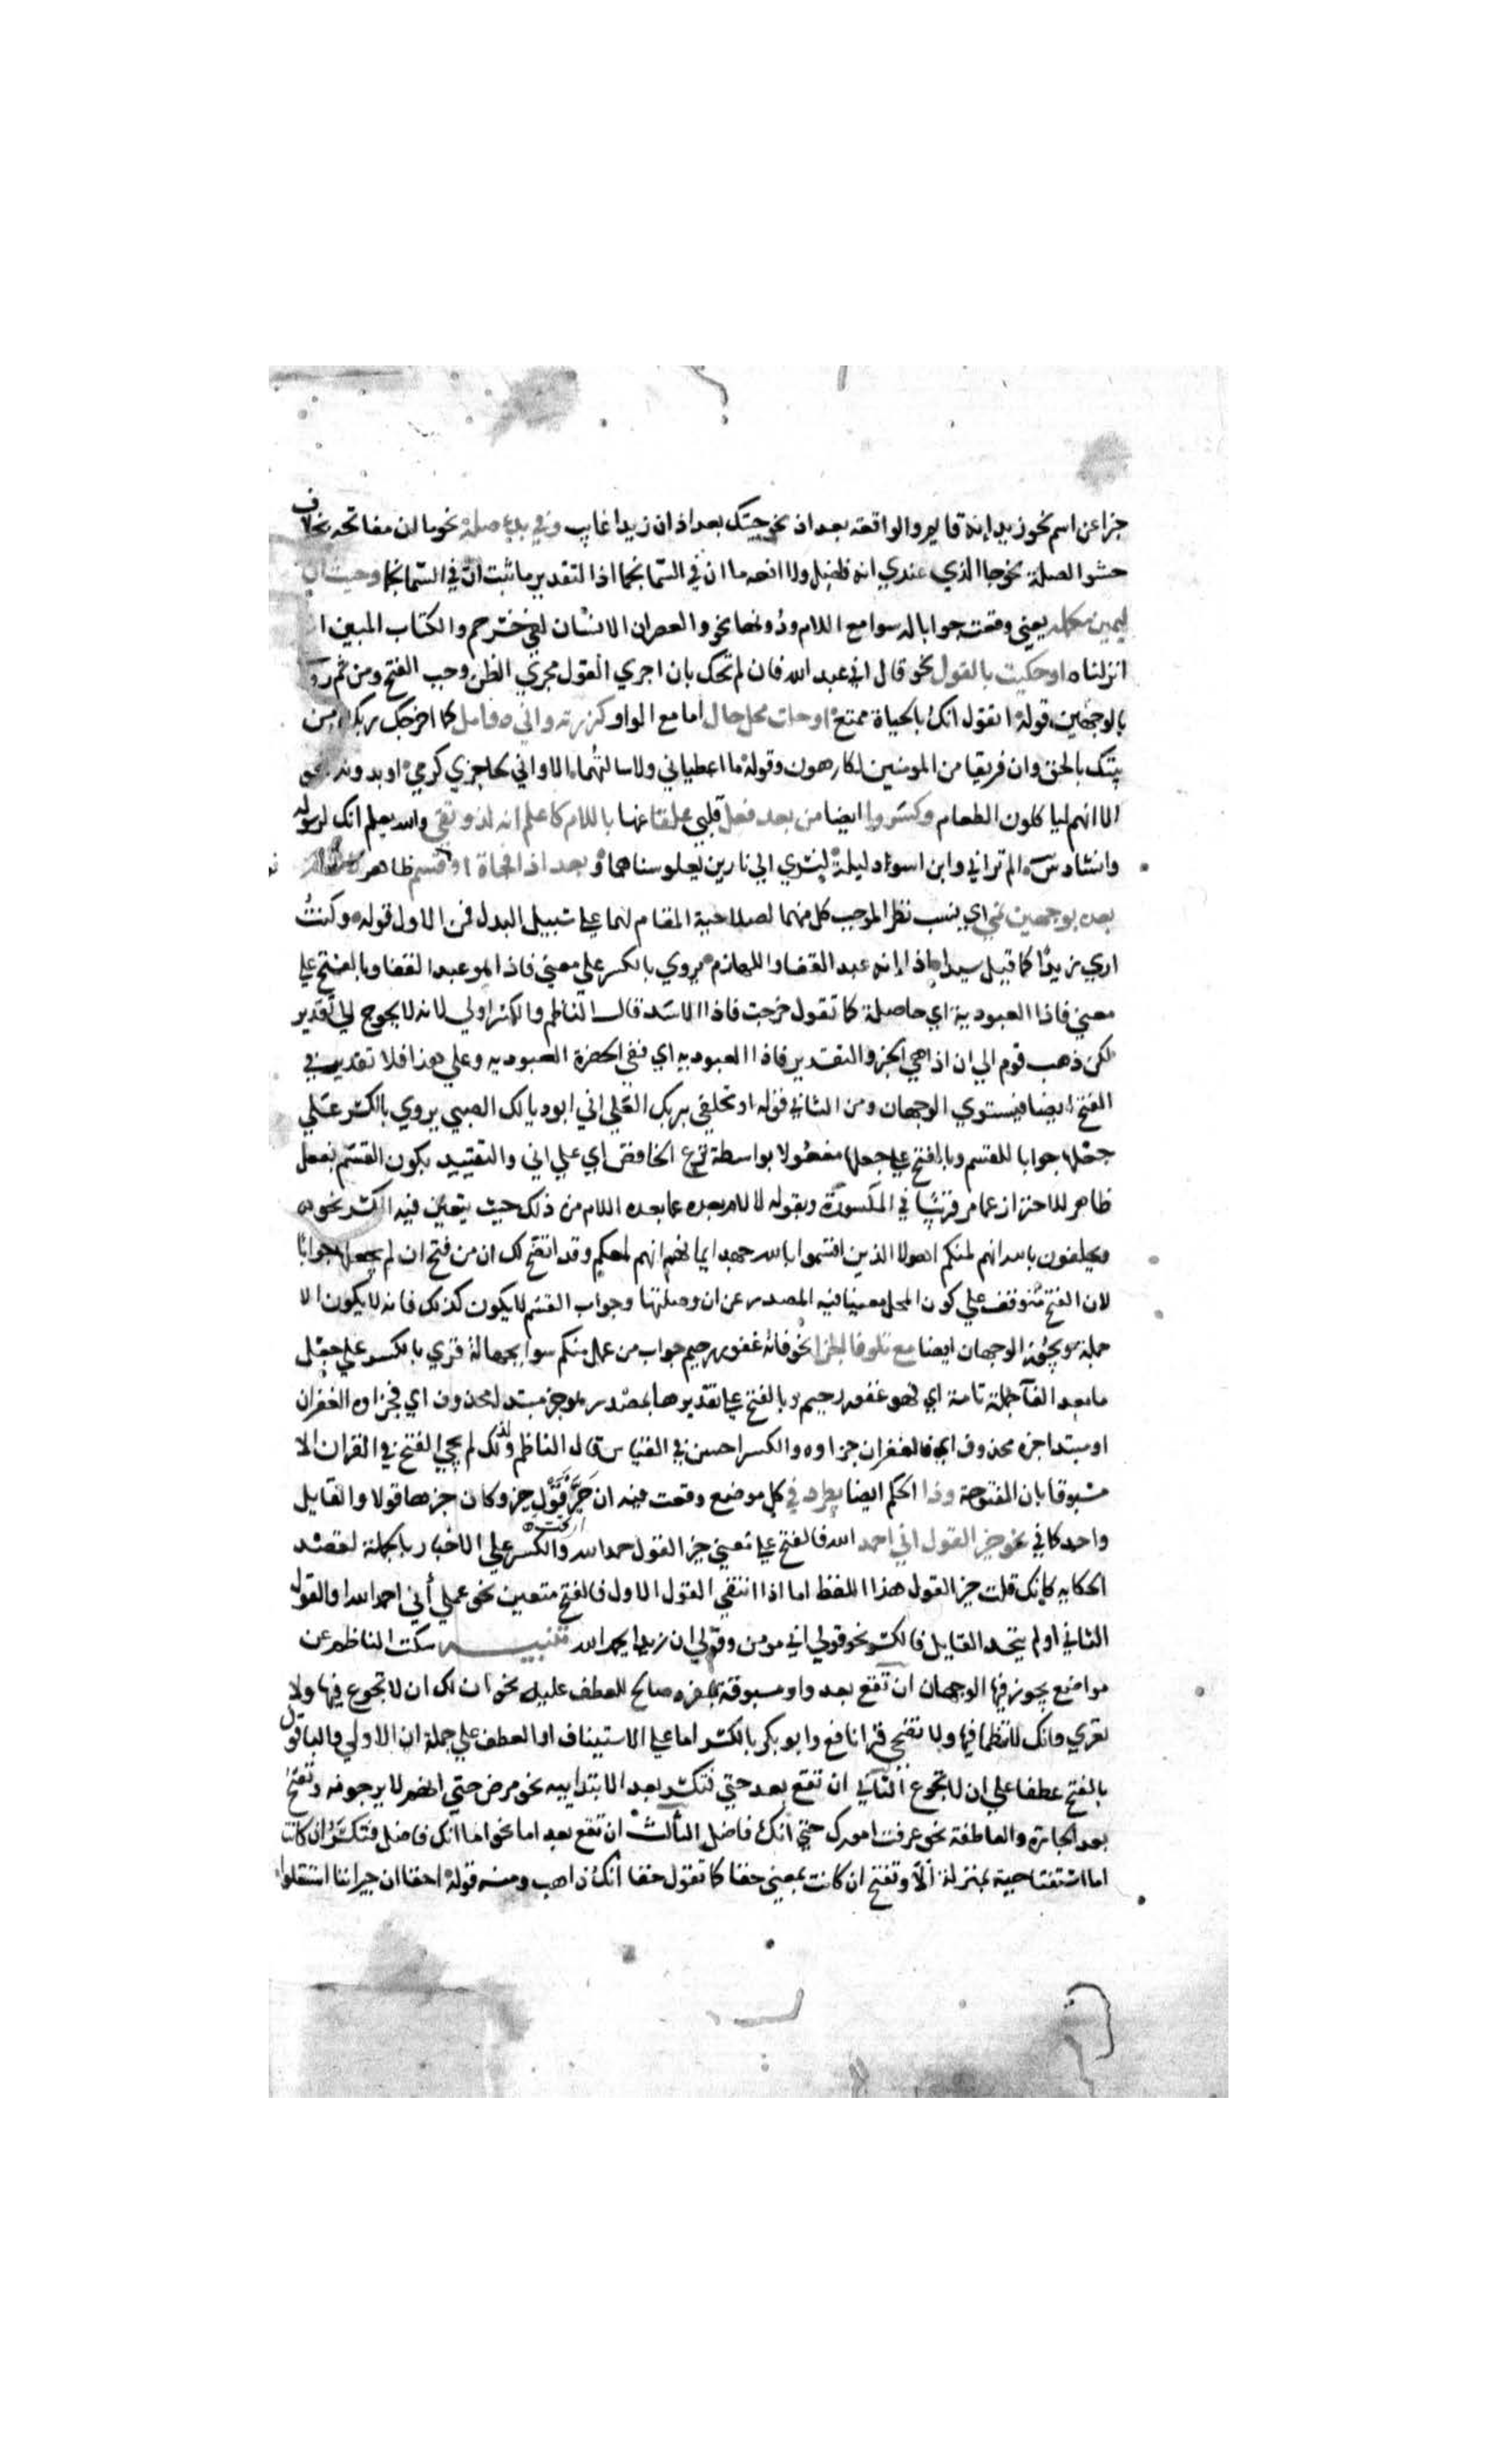 جزا عن اسم نحو زيد إنه قايم والواقعة بعد اذ نحو جيتك بعد اذ ان زيدا غايب وفي بدء صلة نحو ما ان مفاتحه بخلاف
حشو الصلة نحو جا الذي عندي انه فاضل ولا افعله ما ان في السما نجما اذ التقدير ما ثبت ان في السما نجما وحيث ان
ليمين مكمله يعني وقعت جوابا له سوا مع اللام ودونها نحو والعصر ان الانسان لفي خسر حم والكتاب المبين ا
انزلناه او حكيت بالقول نحو قال اني عبد الله فان لم تحك بان اجري القول مجري الظن وجب الفتح ومن ثم روي
بالوجهين قوله اتقول انك بالحياة ممتع او حلت محل حال اما مع الواو كزرته واني ذو امل كما اخرجك ربك من
بيتك بالحق وان فريقا من المومنين لكارهون وقوله ما اعطياني ولا سالتهما الا واني لحاجزي كرمي او بدونه نحو
الا انهم لياكلون الطعام وكسروا ايضا من بعد فعل قلبي علقا عنها باللام كاعلم انه لذو تقي والله يعلم انك لرسوله
وانشاد س الم تر اني وابن اسود ليلة لنسري الي نارين يعلو سناهما و بعد اذا فجاة او قسم ظاهر
بعده بوجهين نمي اي ينسب نظرا لموجب كل منهما لصلاحية المقام لهما علي سبيل البدل فمن الاول قوله وكنت
اري زيدا كما قيل سيدا اذا إنه عبد القفا واللهازم يروي بالكسر علي معني فاذا هو عبد القفا وبالفتح علي
معني فاذا العبودية اي حاصلة كما تقول خرجت فاذا الاسد قال الناظم والكسر اولي لانه لا يحوج الي تقدير
لكن ذهب قوم الي ان اذا هي الخبر والتقدير فاذا العبوديه اي ففي الحضرة العبوديه وعلي هذا فلا تقدير في
الفتح ايضا فيستوي الوجهان ومن الثاني قوله او تحلفي بربك العلي اني ابو ذيالك الصبي يروي بالكسر علي
جعلها جوابا للقسم وبالفتح علي جعلها مفعولا بواسطة نزع الخافض اي علي اني والتقييد بكون القسم بفعل
ظاهر للاحتراز عما مر قريبا في المكسورة وبقوله لا لام بعده عما بعده اللام من ذلك حيث يتعين فيه الكسر نحو
ويحلفون بالله انهم لمنكم اهولا الذين اقسموا بالله جهد ايمانهم انهم لمعكم وقد اتضح لك ان من فتح ان لم يجعلها جوابا
لان الفتح متوقف علي كون المحل مغنيا فيه المصدر عن ان وصلتها وجواب القسم لا يكون كذلك فانه لا يكون الا
جملة ويجوز الوجهان ايضا مع تلو فا الجزا نحو فانه غفور رحيم جواب من عمل منكم سوا بجهالة قري بالكسر علي جعل
ما بعد الفآ جملة تامة اي فهو غفور رحيم وبالفتح علي تقديرها بمصدر هو خبر مبتدا محذوف اي فجزاوه الغفران
او مبتدا خبره محذوف اي فالغفران جزاوه والكسر احسن في القياس قال الناظم ولذلك لم يجي الفتح في القران الا
مسبوقا بان المفتوحة وذا الحكم ايضا يطرد في كل موضع وقعت فيه ان خبر قول خبر وكان خبرها قولا والقايل
واحد كما في نحو خير القول اني احمد الله فالفتح علي معني خير القول حمد الله والكسر علي الاخبار بالجملة لقصد
الحكايه كانك قلت خير القول هذا اللفظ اما اذا انتفي القول الاول فالفتح متعين نحو عملي أني احمد الله او القول
الثاني او لم يتحد القايل فالكسر نحو قولي اني مومن وقولي ان زيدا يحمد الله تنبيه سكت الناظم عن
مواضع يجوز فيها الوجهان ان تقع بعد واو مسبوقة بمفرد صالح للعطف عليه نحو ان لك ان لا تجوع فيها ولا
تعري وانك لا تظما فيها ولا تضحي قرا نافع وابو بكر بالكسر اما علي الاستيناف او العطف علي جملة ان الاولي والباقون
بالفتح عطفا علي ان لا تجوع الثاني ان تقع بعد حتي فتكسر بعد الابتداييه نحو مرض حتي انهم لا يرجونه وتفتح
بعد الجارة والعاطفة نحو عرفت امورك حتي انك فاضل الثالث ان تقع بعد اما نحو اما انك فاضل فتكسر ان كانت
اما استفتاحية بمنزلة ألا وتفتح ان كانت بمعني حقا كما تقول حقا انك ذاهب ومنه قوله احقا ان جيرتنا استقلوا